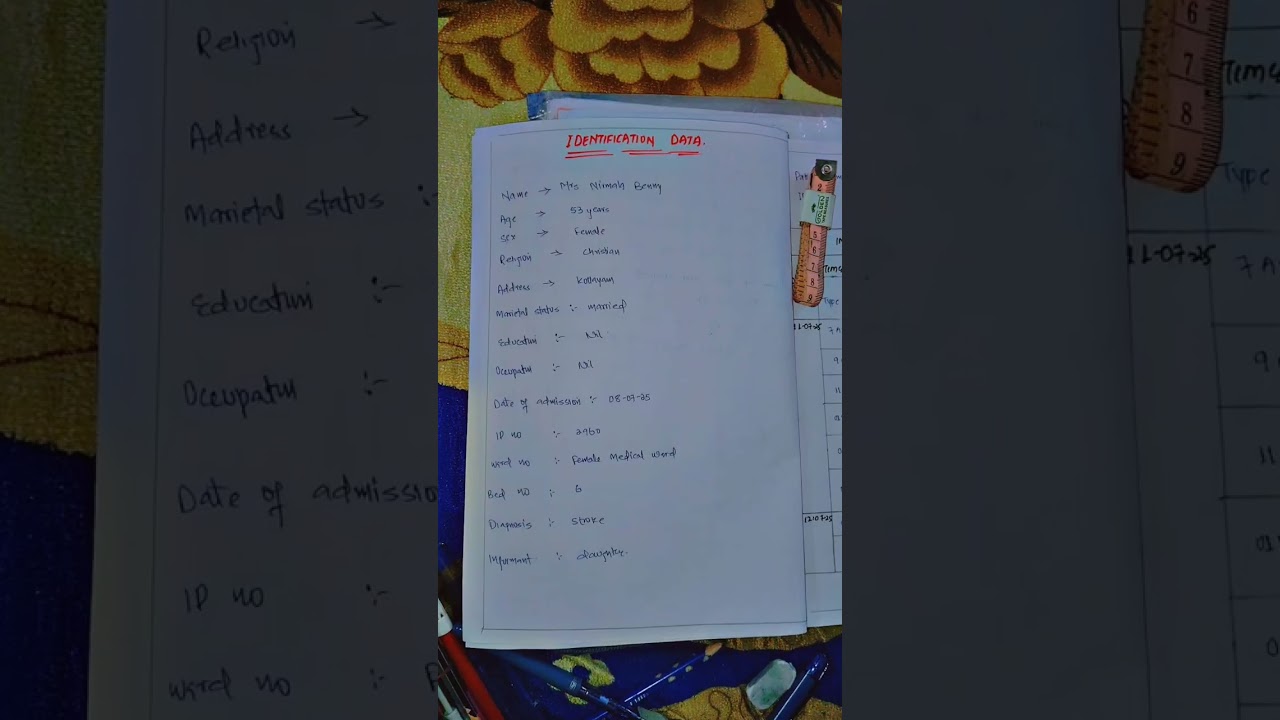 IDENTIFICATION DATA.
Name → Mrs Nirmah Benny
Age → 53 years
Sex → Female
Religion → Christian
Address → Kottayam
Marietal status :- married
Education :- Nil
Occupation :- Nil
Date of admission :- 08-07-25
IP no :- 2960
Ward no :- Female Medical Ward
Bed no :- 6
Diagnosis :- Stroke
Informant :- daughter.
GOLDEN
5
6
7
8
9
Time
Type
11-07-25
7 A
12-07-25
Religion →
Address →
Marietal status :-
Education :-
Occupation :-
Date of admissio
IP no :-
Ward no :-
6
7
8
9
Time
Type
11-07-25
7 A
9
11
01